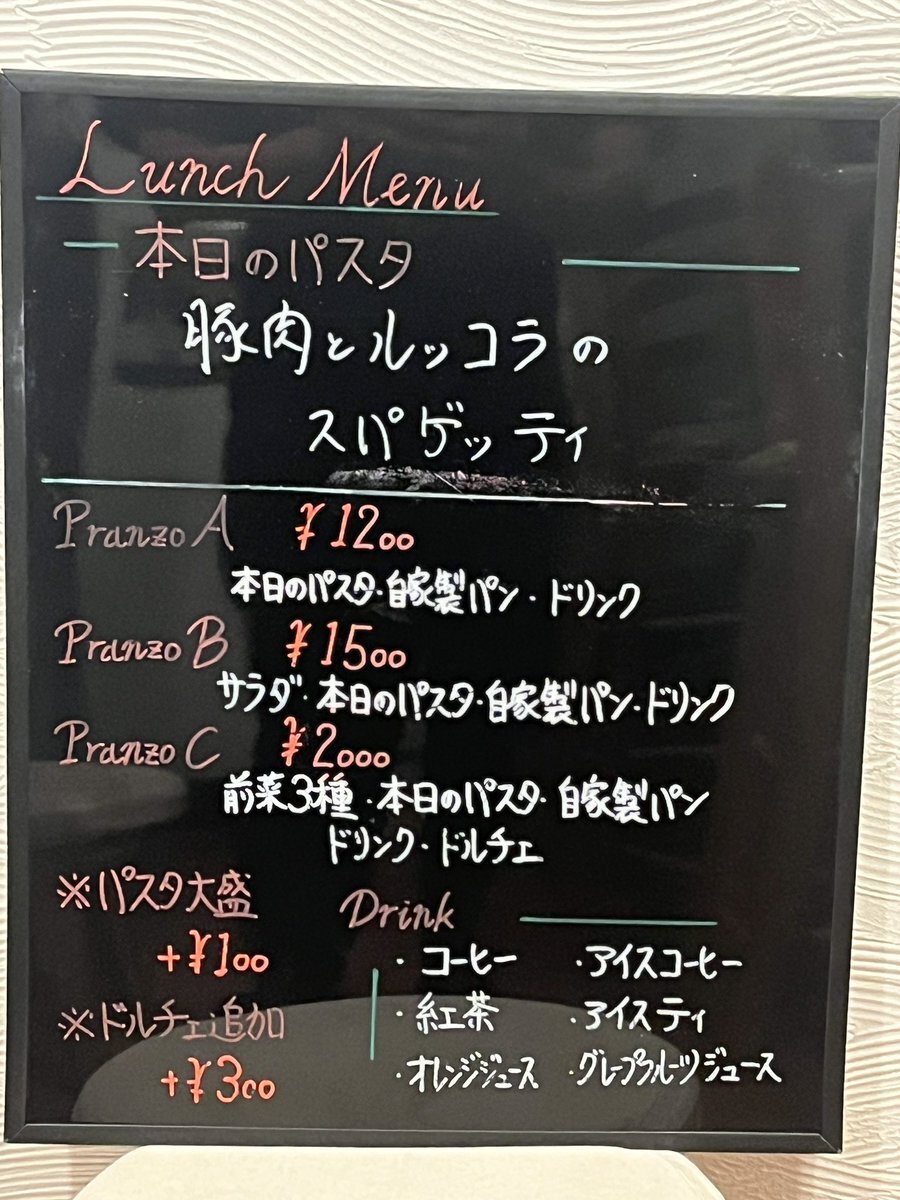 Lunch Menu
本日のパスタ
豚肉とルッコラの
スパゲッティ
Pranzo A ¥1200
本日のパスタ・自家製パン・ドリンク
Pranzo B ¥1500
サラダ・本日のパスタ・自家製パン・ドリンク
Pranzo C ¥2000
前菜3種・本日のパスタ・自家製パン
ドリンク・ドルチェ
※パスタ大盛
+¥100
※ドルチェ追加
+¥300
Drink
・コーヒー ・アイスコーヒー
・紅茶 ・アイスティ
・オレンジジュース ・グレープフルーツジュース